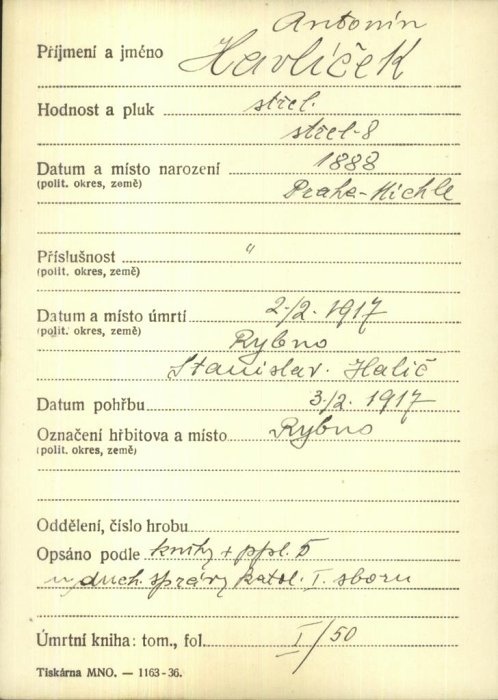 Antonín
Příjmení a jméno Havlíček
Hodnost a pluk střel.
střel-8
Datum a místo narození 1888
(polit. okres, země) Praha-Michle
Příslušnost "
(polit. okres, země)
Datum a místo úmrtí 2./2. 1917
(polit. okres, země) Rybno
Stanislav. Halič
Datum pohřbu 3./2. 1917
Označení hřbitova a místo Rybno
(polit. okres, země)
Oddělení, číslo hrobu
Opsáno podle knihy + ppl. 5
duch. správy katol. I. sboru
Úmrtní kniha: tom., fol. I/50
Tiskárna MNO. — 1163-36.